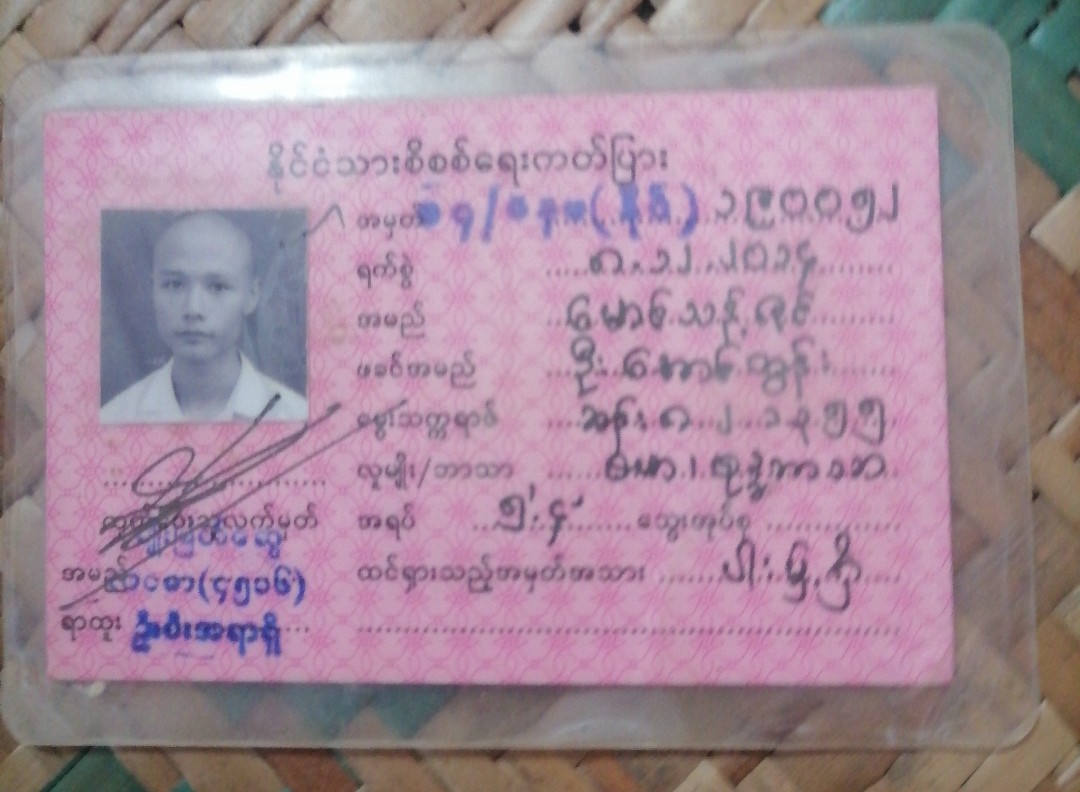 နိုင်ငံသားစိစစ်ရေးကတ်ပြား
အမှတ် ၁၄/ (နိုင်) ၁၉၀၀၅၂
ရက်စွဲ ၈.၁၂.၂၀၁၄
အမည် မောင်သန့်ဇင်
ဖခင်အမည် ဦးအောင်ထွန်း
မွေးသက္ကရာဇ် ၈ ၂ ၁၃၅၅
လူမျိုး/ဘာသာ ဗမာ၊ ဗုဒ္ဓဘာသာ
အရပ် ၅'.၄" သွေးအုပ်စု
ထင်ရှားသည့်အမှတ်အသား
ထုတ်ပေးသူလက်မှတ်
အမည် (၄၅၁၆)
ရာထူး ဦးစီးအရာရှိ